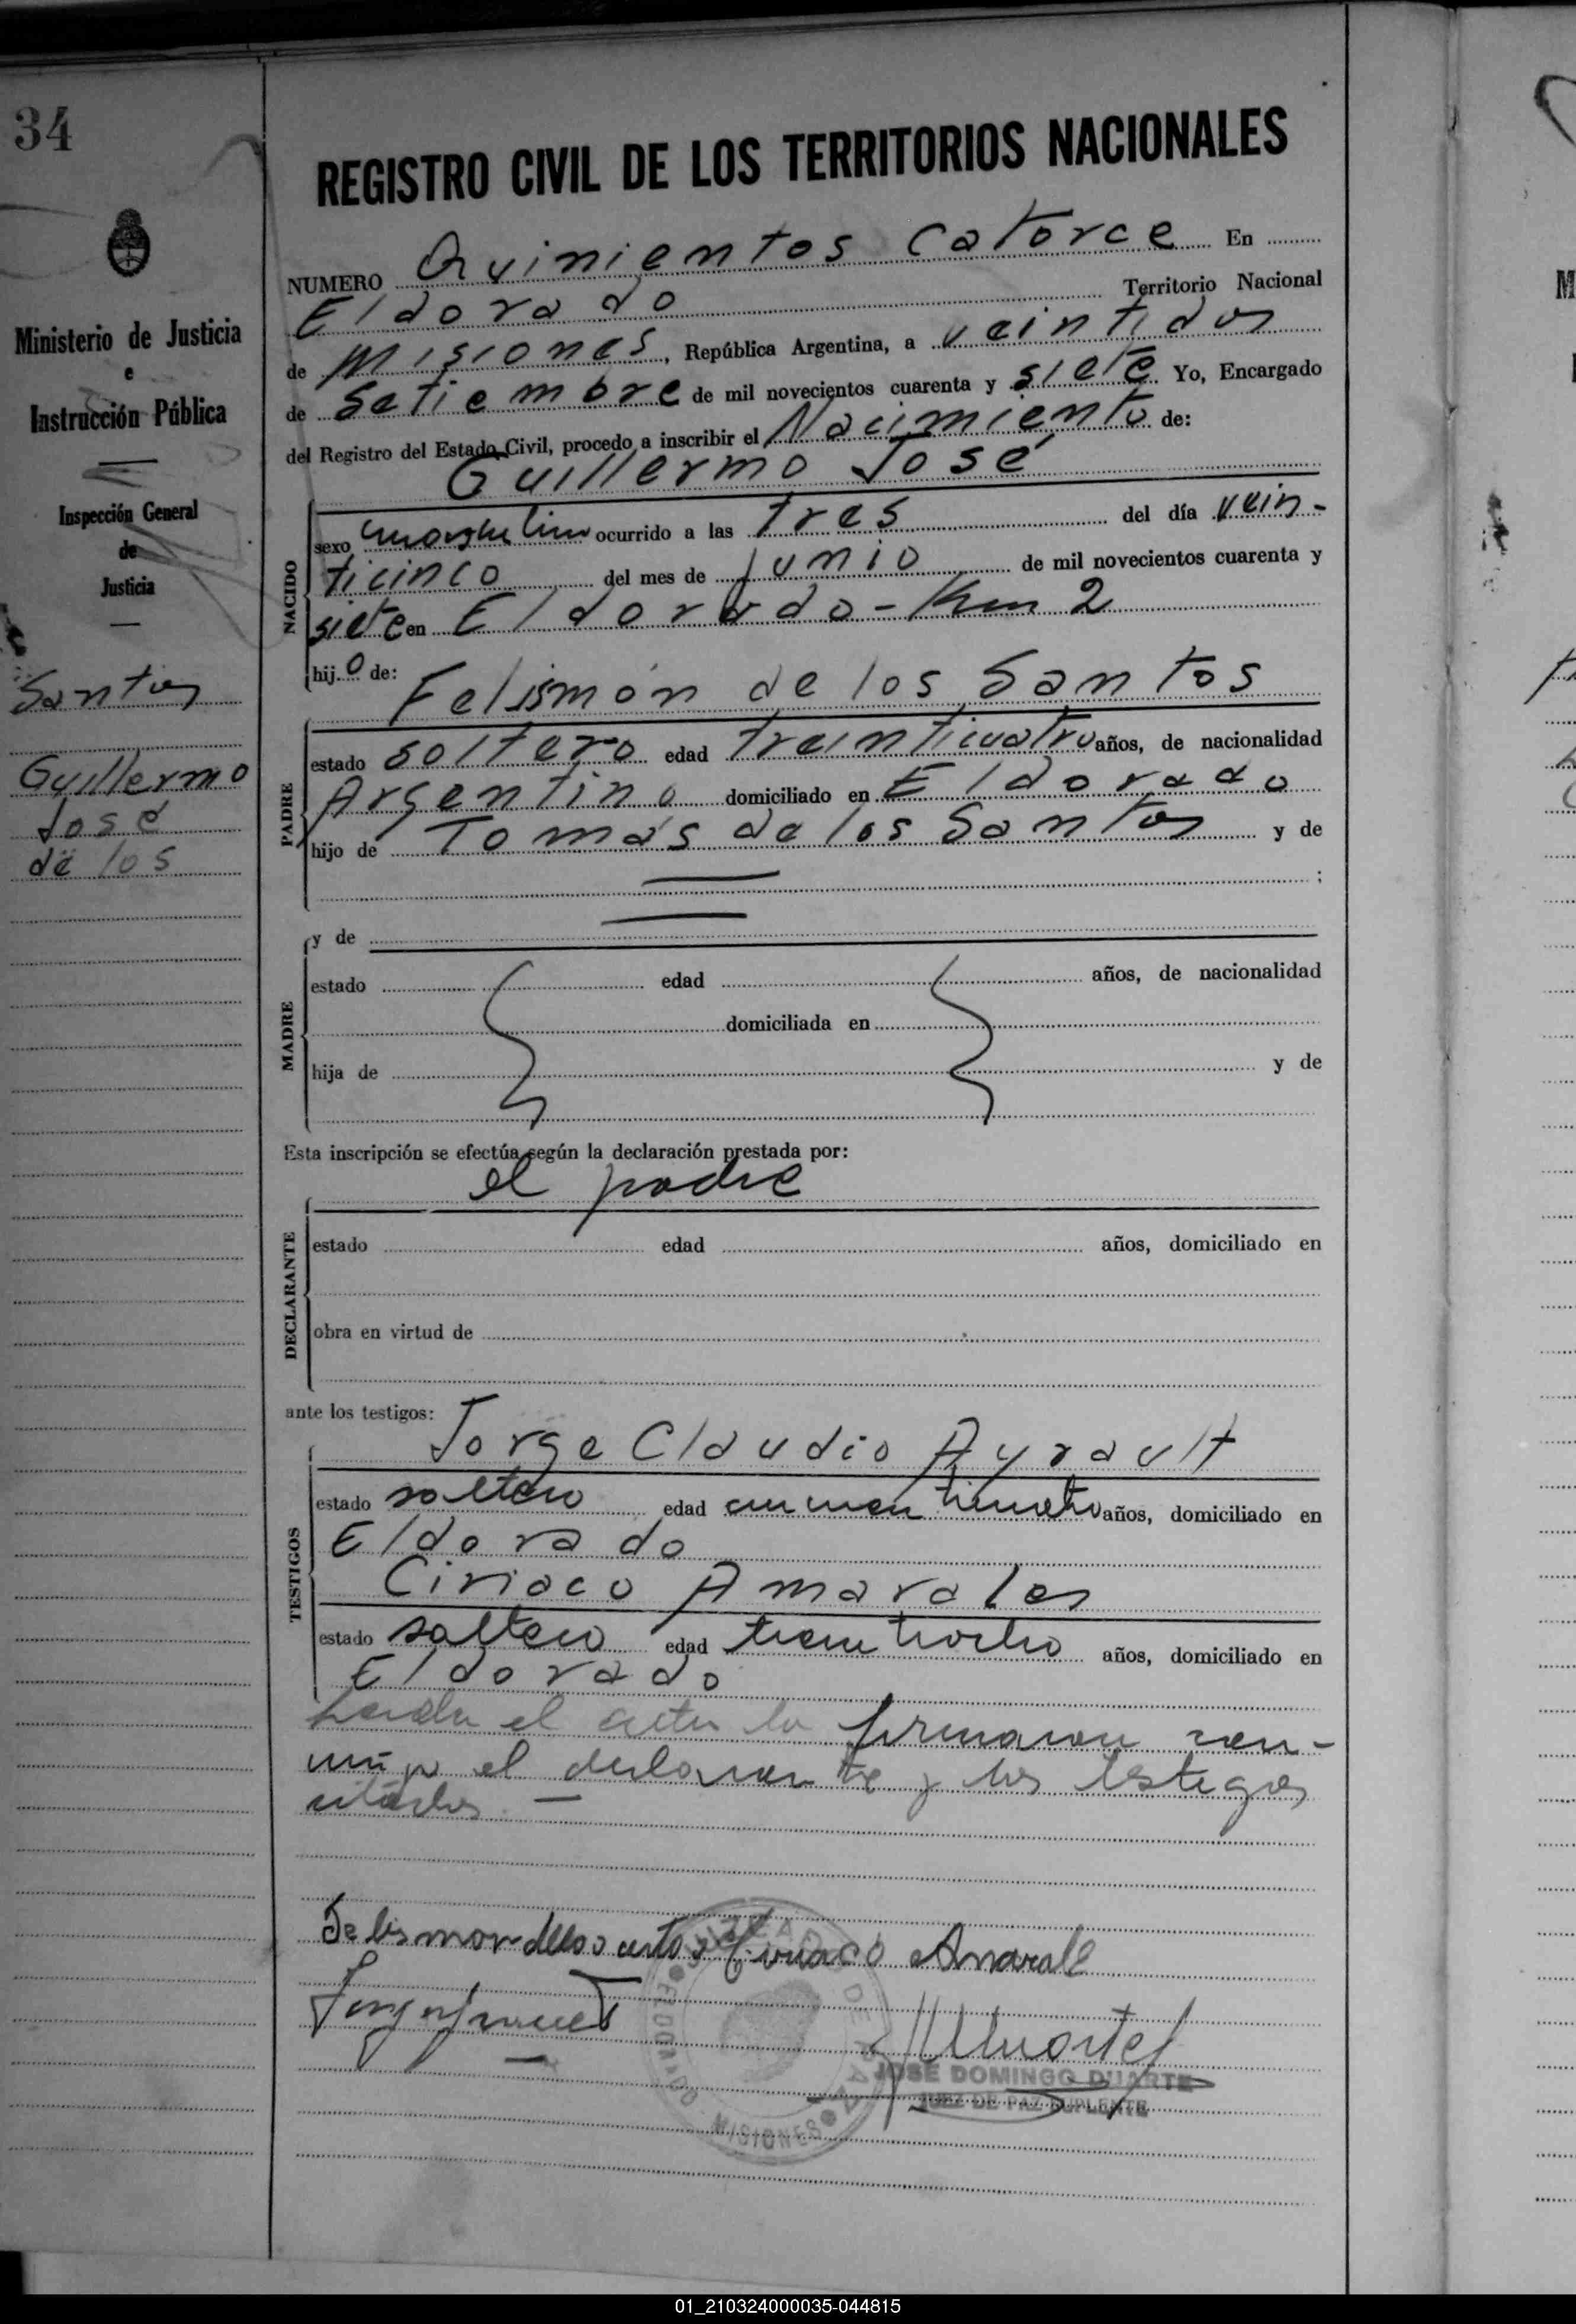 34
Ministerio de Justicia
e
Instrucción Pública
Inspección General
de
Justicia
Santos
Guillermo
José
de los
REGISTRO CIVIL DE LOS TERRITORIOS NACIONALES
NUMERO Quinientos Catorce En
Eldorado Territorio Nacional
de Misiones, República Argentina, a veintidos
de Setiembre de mil novecientos cuarenta y siete Yo, Encargado
del Registro del Estado Civil, procedo a inscribir el Nacimiento de:
Guillermo José
NACIDO
sexo masculino ocurrido a las tres del día vein-
ticinco del mes de junio de mil novecientos cuarenta y
siete en Eldorado - Km 2
hijo de:
Felismón de los Santos
PADRE
estado soltero edad treinticuatro años, de nacionalidad
Argentino domiciliado en Eldorado
hijo de Tomás de los Santos y de
;
MADRE
y de
estado edad años, de nacionalidad
domiciliada en
hija de y de
Esta inscripción se efectúa según la declaración prestada por:
el padre
DECLARANTE
estado edad años, domiciliado en
obra en virtud de
ante los testigos:
Jorge Claudio Ayrault
TESTIGOS
estado soltero edad años, domiciliado en
Eldorado
Ciriaco Amarales
estado soltero edad treintiocho años, domiciliado en
Eldorado
Leida el acta la firmaron con-
migo el declarante y los testigos
citados. —
Felismon delos santos Ciriaco Amarale
JUZGADO DE PAZ
ELDORADO
MISIONES
JOSE DOMINGO DUARTE
JUEZ DE PAZ SUPLENTE
01_210324000035-044815